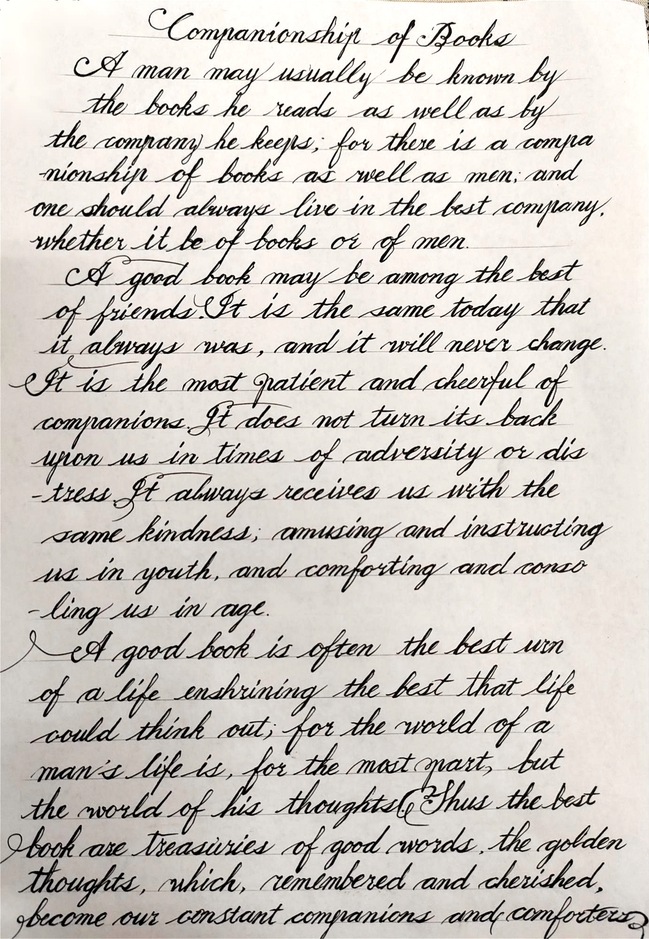 Companionship of Books
A man may usually be known by
the books he reads as well as by
the company he keeps; for there is a compa
-nionship of books as well as men; and
one should always live in the best company,
whether it be of books or of men.
A good book may be among the best
of friends. It is the same today that
it always was, and it will never change.
It is the most patient and cheerful of
companions. It does not turn its back
upon us in times of adversity or dis
-tress. It always receives us with the
same kindness; amusing and instructing
us in youth, and comforting and conso
-ling us in age.
A good book is often the best urn
of a life enshrining the best that life
could think out; for the world of a
man's life is, for the most part, but
the world of his thoughts. Thus the best
book are treasuries of good words, the golden
thoughts, which, remembered and cherished,
become our constant companions and comforters